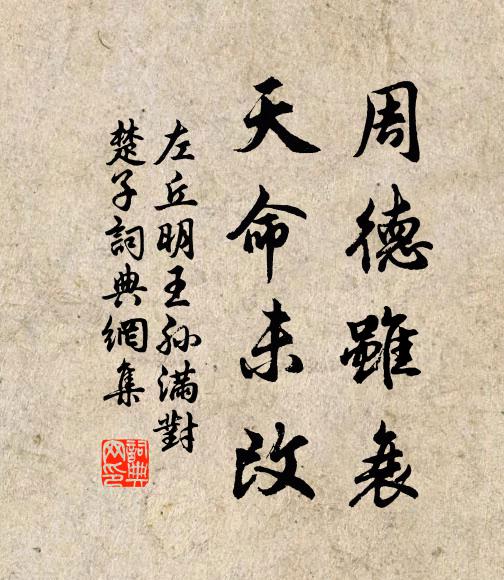 周德雖衰
天命未改
左丘明王孙满對
楚子詞典網集
詞典
网印